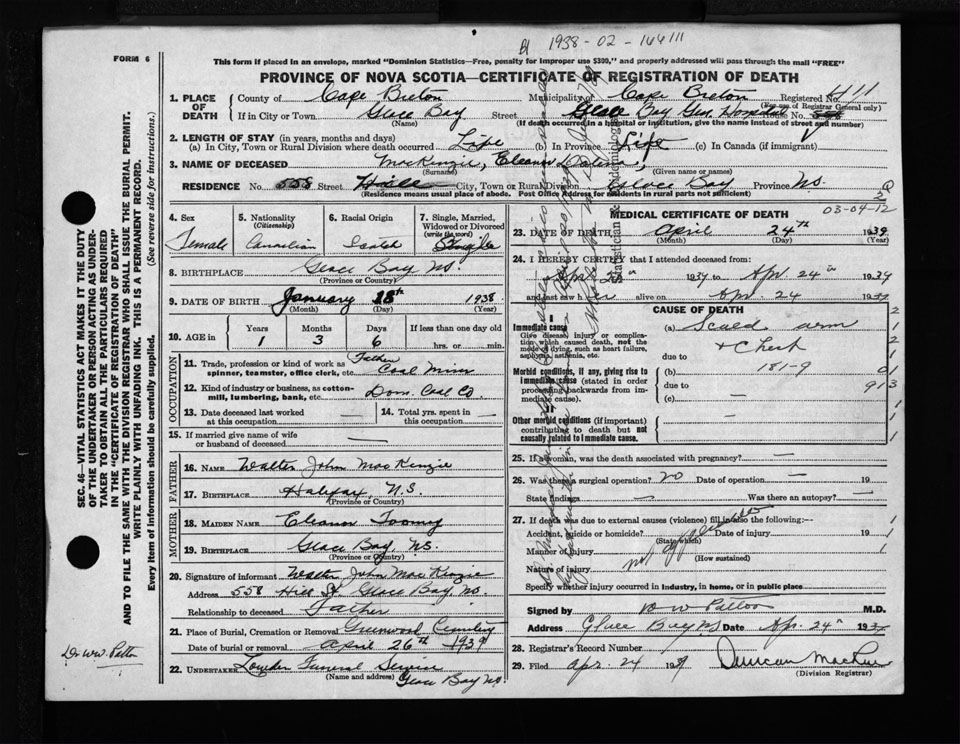 1938 - 02 - 144111
FORM 6
This form if placed in an envelope, marked "Dominion Statistics—Free, penalty for improper use $300," and properly addressed will pass through the mail "FREE"
PROVINCE OF NOVA SCOTIA—CERTIFICATE OF REGISTRATION OF DEATH
1. PLACE OF DEATH
County of Cape Breton Municipality of Cape Breton Registered No. 4111
(For use of Registrar General only)
If in City or Town Glace Bay (Name) Street Glace Bay Gen. House No.
(If death occurred in a hospital or institution, give the name instead of street and number)
2. LENGTH OF STAY (in years, months and days)
(a) In City, Town or Rural Division where death occurred Life (b) In Province Life (c) In Canada (if immigrant)
3. NAME OF DECEASED MacKenzie, Eleanor
(Surname) (Given name or names)
RESIDENCE No. 558 Street Hill City, Town or Rural Division Glace Bay Province N.S.
(Residence means usual place of abode. Post Office Address for residents in rural parts not sufficient)
4. Sex Female
5. Nationality (Citizenship) Canadian
6. Racial Origin Scotch
7. Single, Married, Widowed or Divorced (write the word) Single
8. BIRTHPLACE Glace Bay N.S.
(Province or Country)
9. DATE OF BIRTH January 18th 1938
(Month) (Day) (Year)
10. AGE in Years 1 Months 3 Days 6 If less than one day old hrs. or min.
OCCUPATION
11. Trade, profession or kind of work as spinner, teamster, office clerk, etc. Father Coal Miner
12. Kind of industry or business, as cotton-mill, lumbering, bank, etc. Dom. Coal Co.
13. Date deceased last worked at this occupation —
14. Total yrs. spent in this occupation —
15. If married give name of wife or husband of deceased —
FATHER
16. NAME Walter John MacKenzie
17. BIRTHPLACE Halifax, N.S.
(Province or Country)
MOTHER
18. MAIDEN NAME Eleanor Toomey
19. BIRTHPLACE Glace Bay, N.S.
(Province or Country)
20. Signature of informant Walter John MacKenzie
Address 558 Hill St Glace Bay N.S.
Relationship to deceased Father
21. Place of Burial, Cremation or Removal Greenwood Cemetery
Date of burial or removal April 26th 1939
22. UNDERTAKER Funeral Service
(Name and address) Glace Bay N.S.
MEDICAL CERTIFICATE OF DEATH
03-04-12
23. DATE OF DEATH April 24th 1939
(Month) (Day) (Year)
24. I HEREBY CERTIFY that I attended deceased from
1939 to Apr. 24th 1939
and last saw her alive on Apr. 24 1939
CAUSE OF DEATH
I
Immediate cause
Give disease, injury or complication which caused death, not the mode of dying, such as heart failure, asphyxia, asthenia, etc.
(a) Scald arm
+ Chest
due to
Morbid conditions, if any, giving rise to immediate cause (stated in order proceeding backwards from immediate cause).
(b) 181-9
due to
(c) —
II
Other morbid conditions (if important) contributing to death but not causally related to immediate cause.
25. If a woman, was the death associated with pregnancy? —
26. Was there a surgical operation? no Date of operation — 19
State findings — Was there an autopsy? —
27. If death was due to external causes (violence) fill in also the following:—
Accident, suicide or homicide? Date of injury 19
(State which)
Manner of injury
(How sustained)
Nature of injury
Specify whether injury occurred in industry, in home, or in public place
Signed by W W Patton M.D.
Address Glace Bay N.S. Date Apr. 24th 1939
28. Registrar's Record Number
29. Filed Apr. 24 1939
(Division Registrar)
SEC. 46—VITAL STATISTICS ACT MAKES IT THE DUTY
OF THE UNDERTAKER OR PERSON ACTING AS UNDER-
TAKER TO OBTAIN ALL THE PARTICULARS REQUIRED
IN THE "CERTIFICATE OF REGISTRATION OF DEATH"
AND TO FILE THE SAME WITH THE DIVISION REGISTRAR WHO SHALL ISSUE THE BURIAL PERMIT.
WRITE PLAINLY WITH UNFADING INK. THIS IS A PERMANENT RECORD.
Every item of information should be carefully supplied. (See reverse side for instructions.)
Dr W W Patton